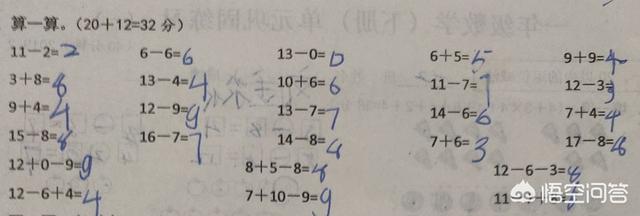 算一算。(20+12=32 分)
11-2=2 6-6=6 13-0=0 6+5=5 9+9=4
3+8=8 13-4=4 10+6=6 11-7=7 12-3=3
9+4=4 12-9=9 13-7=7 14-6=6 7+4=4
15-8=8 16-7=7 14-8=8 7+6=3 17-8=8
12+0-9=9 8+5-8=8 12-6-3=8
12-6+4=4 7+10-9=9 11-
悟空问答